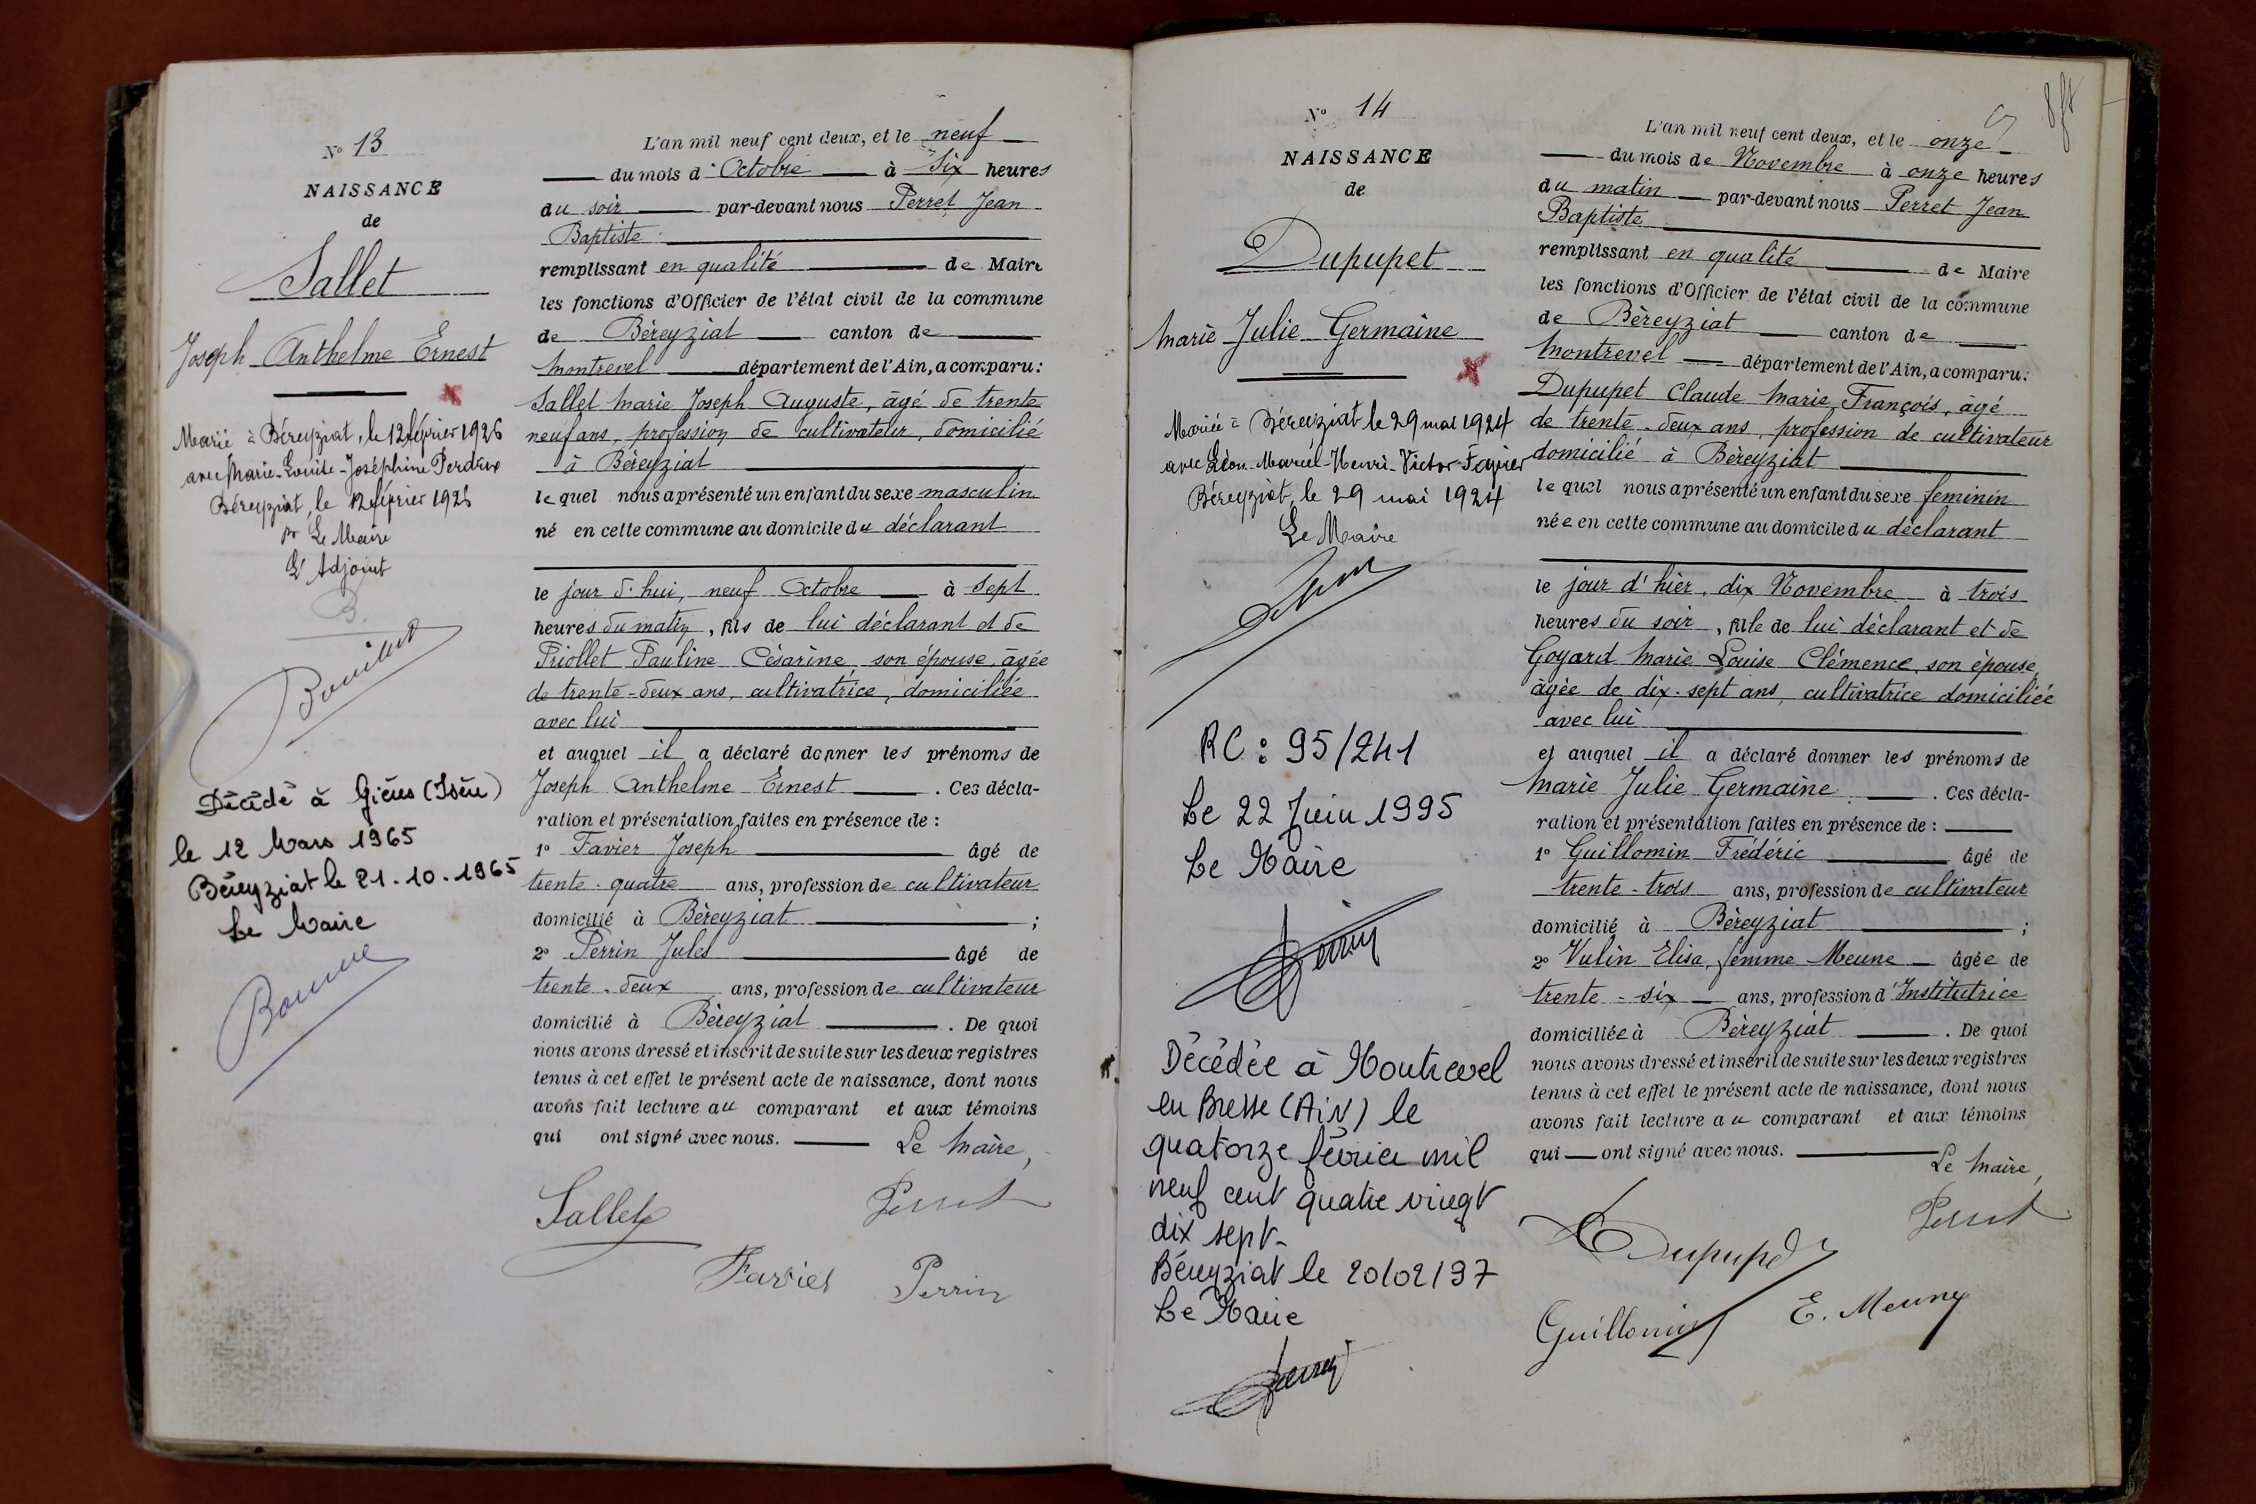 Nº 13
NAISSANCE
de
Sallet
Joseph Anthelme Ernest
Marié à Béreyziat, le 12 février 1926
avec Marie-Louise-Joséphine Perdrix
Béreyziat, le 12 février 1926
pr Le Maire
L'Adjoint
B.
Décédé à Gières (Isère)
le 12 Mars 1965
Béreyziat le 21.10.1965
Le Maire
L'an mil neuf cent deux, et le neuf
du mois d'Octobre à Six heures
du soir par-devant nous Perret Jean
Baptiste
remplissant en qualité de Maire
les fonctions d'Officier de l'état civil de la commune
de Béreyziat canton de
Montrevel département de l'Ain, a comparu:
Sallet Marie Joseph Auguste, âgé de trente
neuf ans, profession de cultivateur, domicilié
à Béreyziat
lequel nous a présenté un enfant du sexe masculin
né en cette commune au domicile du déclarant
le jour d'hui, neuf Octobre à Sept
heures du matin, fils de lui déclarant et de
Priollet Pauline Césarine, son épouse, âgée
de trente-deux ans, cultivatrice, domiciliée
avec lui
et auquel il a déclaré donner les prénoms de
Joseph Anthelme Ernest. Ces décla-
ration et présentation faites en présence de:
1º Favier Joseph âgé de
trente-quatre ans, profession de cultivateur
domicilié à Béreyziat;
2º Perrin Jules âgé de
trente-deux ans, profession de cultivateur
domicilié à Béreyziat. De quoi
nous avons dressé et inscrit de suite sur les deux registres
tenus à cet effet le présent acte de naissance, dont nous
avons fait lecture au comparant et aux témoins
qui ont signé avec nous. Le Maire,
Sallet Perret
Favier Perrin
Nº 14
NAISSANCE
de
Dupupet
Marie Julie Germaine
Mariée à Béreyziat le 29 mai 1924
avec Léon-Marcel-Henri-Victor Favier
Béreyziat, le 29 mai 1924
Le Maire
RC: 95/241
Le 22 Juin 1995
Le Maire
Décédée à Montrevel
en Bresse (Ain) le
quatorze février mil
neuf cent quatre vingt
dix sept-
Béreyziat le 20/02/97
Le Maire
L'an mil neuf cent deux, et le onze
du mois de Novembre à onze heures
du matin par-devant nous Perret Jean
Baptiste
remplissant en qualité de Maire
les fonctions d'Officier de l'état civil de la commune
de Béreyziat canton de
Montrevel département de l'Ain, a comparu:
Dupupet Claude Marie François, âgé
de trente-deux ans, profession de cultivateur
domicilié à Béreyziat
lequel nous a présenté un enfant du sexe feminin
née en cette commune au domicile du déclarant
le jour d'hier, dix Novembre à trois
heures du soir, fille de lui déclarant et de
Goyard Marie Louise Clémence, son épouse,
âgée de dix-sept ans, cultivatrice domiciliée
avec lui
et auquel il a déclaré donner les prénoms de
Marie Julie Germaine. Ces décla-
ration et présentation faites en présence de:
1º Guillomin Frédéric âgé de
trente-trois ans, profession de cultivateur
domicilié à Béreyziat;
2º Vulin Elisa, femme Meune âgée de
trente-six ans, profession d'Institutrice
domiciliée à Béreyziat. De quoi
nous avons dressé et inscrit de suite sur les deux registres
tenus à cet effet le présent acte de naissance, dont nous
avons fait lecture au comparant et aux témoins
qui ont signé avec nous.
Le Maire,
Dupupet Perret
Guillomin E. Meune